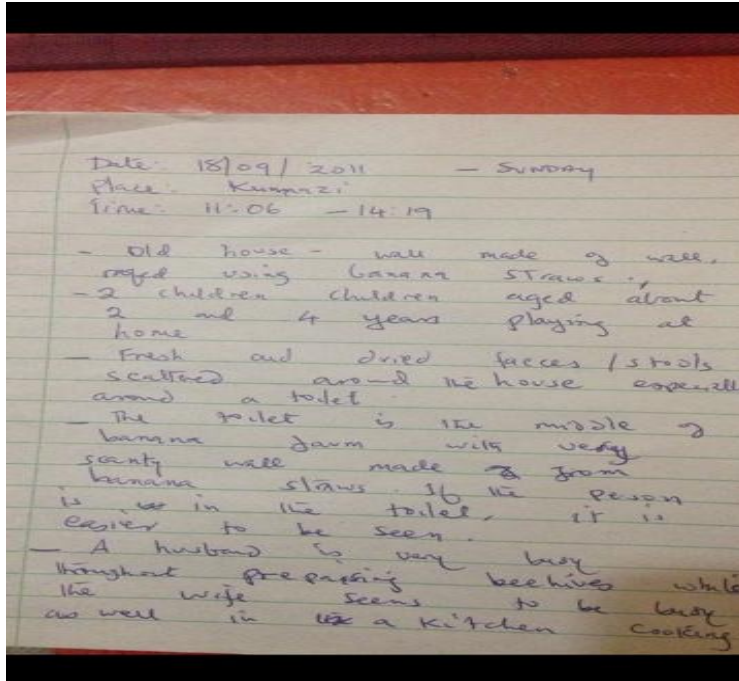 Date: 18/09/2011 - SUNDAY
Place:
Time: 11:06 - 14:19
- Old house - wall made of wall,
roofed using banana straws.,
- 2 children children aged about
2 and 4 years playing at
home
- Fresh and dried faeces / stools
scattered around the house especiall
around a toilet.
- The toilet is the middle of
banana farm with very
scanty wall made from
banana straws. If the person
is in the toilet, it is
easier to be seen.
- A husband is very busy
throughout preparing beehives while
the wife seems to be busy
as well in a kitchen cooking